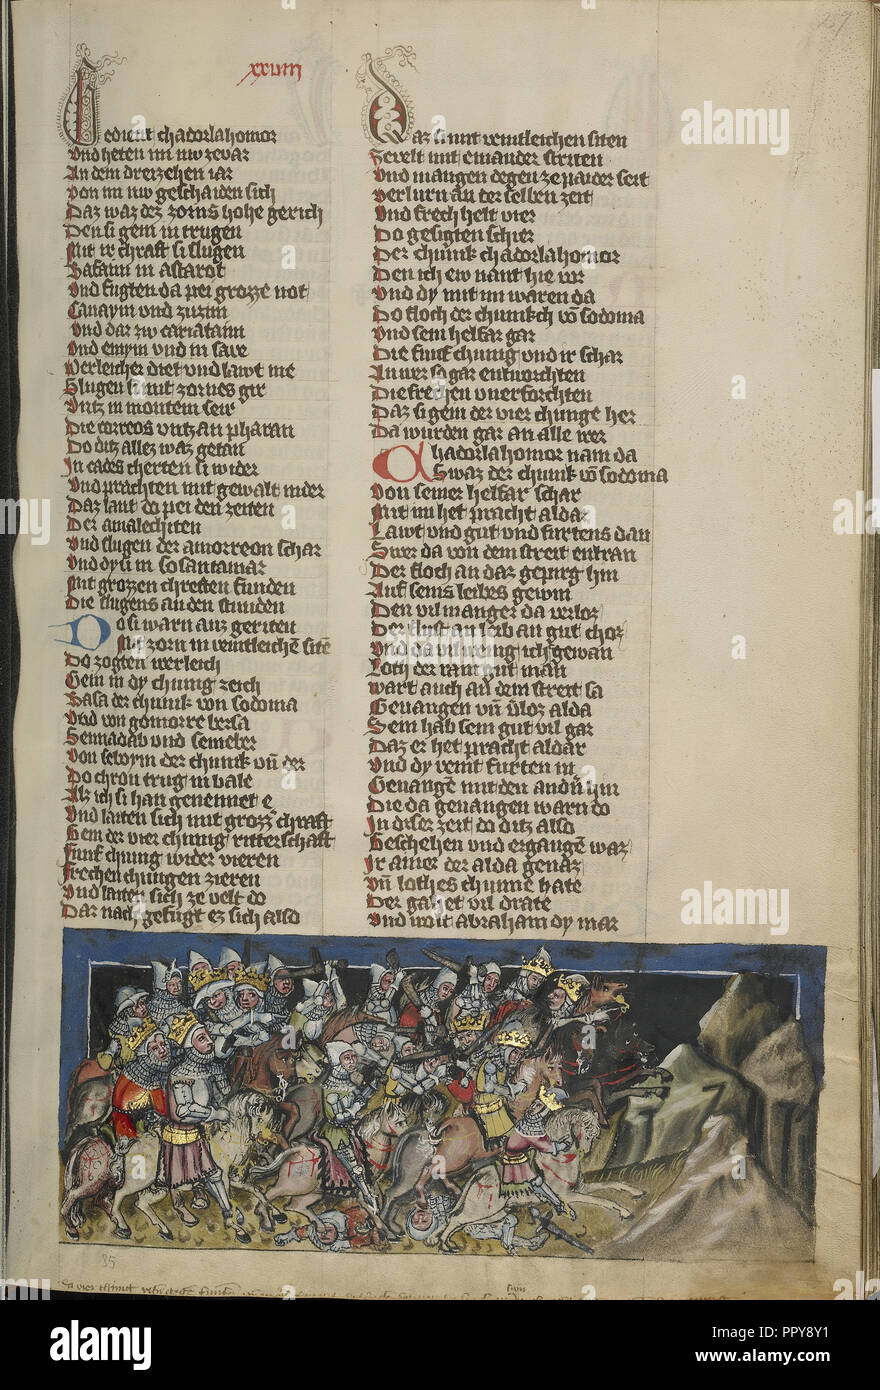 xxviii
Gedient chadorlahomor
Vnd heten im nw zevar
In dem dreizehen iar
Von im nw geschaiden sich
Daz waz dez zorns hohe gerich
Den si gem in trugen
Mit ir chraft si slugen
Rafaim in astarot
Vnd fugten da pei grozze not
Canaym vnd zuzim
Vnd dar zw cariataim
Vnd emym vnd in save
Werleicher diet vnd lawt me
Slugen si mit zornes gir
Vntz in montem seir
Die correos vntz an pharan
Do ditz allez waz getan
In cades cherten si wider
Vnd prachten mit gewalt nider
Daz lant do pei den zeiten
Der amalechiten
Vnd slugen der amorreon schar
Vnd dy si in
Mit grozzen chreften funden
Die slugens an den stunden
Do si warn auz geriten
Mit zorn in veintleichē sitē
Do zogten werleich
Gein in dy chunig reich
Basa der chunik von sodoma
Vnd von gomorre bersa
Sennadab vnd semeber
Von seboym der chunik vn̄ der
Do chron trug in bale
Als ich si han genennet e
Vnd laiten sich mit grozz chraft
Gem der vier chunig ritterschaft
Funf chunig wider vieren
Frechen chungen zieren
Vnd laiten sich ze velt do
Dar nach gefugt ez sich also
Daz si mit veintleichen siten
Sevelt mit einander striten
Vnd mangen degen ze paider seit
Verlurn an der selben zeit
Vnd frech helt vier
Do gesigten schier
Der chunik chadorlahomor
Den ich ew nant hie vor
Vnd dy mit im waren da
Do floch der chunikch vō sodoma
Vnd sein helfar gar
Die funf chunig vnd ir schar
In wer so gar entworchten
Die frechen vnerforchten
Daz si gem der vier chunge her
Da wurden gar an alle wer
Chadorlahomor nam da
Swaz der chunik vō sodoma
Von seiner helfar schar
Mit im het pracht aldar
Lawt vnd gut vnd furtens dan
Swer da von dem streit entran
Der floch an daz gepirg hin
Auf seins leibes gewin
Den vil manger da verloz
Der flust an leib an gut chor
Vnd da vil wenig ich gewan
Loth der rain gut man
Wart auch an dem streit sa
Gevangen vn̄ vloz alda
Sein hab sein gut vil gar
Daz er het pracht aldar
Vnd dy veint furten in
Gevangē mit den andn̄ hin
Die da gevangen warn do
In diser zeit do ditz also
Geschehen vnd ergangē waz
Ir ainer der alda genaz
Vn̄ lothes chunne hate
Der gahet vil drate
Vnd wolt abraham dy mar
237
35
alamy
alamy stock photo
PPY8Y1
www.alamy.com